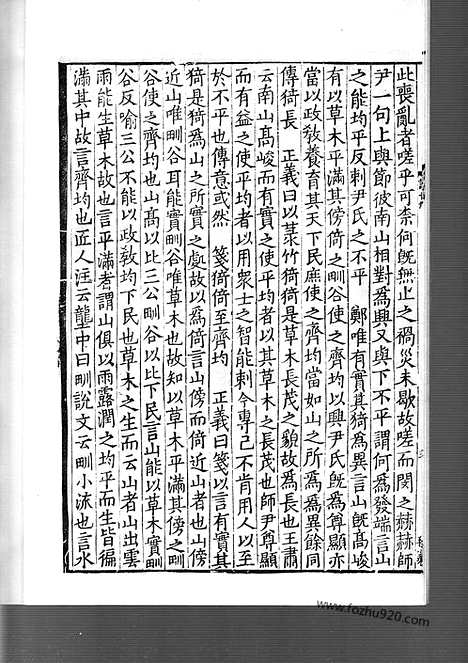 此喪亂者嗟乎可柰何旣無止之禍災未歇故嗟而閔之赫赫師
尹一句上與節彼南山相對爲興又與下不平謂何爲發端言山
之能均平反刺尹氏之不平 鄭唯有實其猗爲異言山旣高峻
有以草木平滿其傍倚之畎谷使之齊均以興尹氏旣爲尊顯亦
當以政敎養育其天下民庶使之齊均當如山之所爲爲異餘同
傳猗長 正義曰以菉竹猗猗是草木長茂之貌故爲長也王肅
云南山高峻而有實之使平均者以草木之長茂也師尹尊顯
而有益之使平均者以用衆士之智能刺令專己不肯用人以至
於不平也傳意或然 箋猗倚至齊均 正義曰箋以言有實其
猗是猗爲山之所實之處故以爲倚言山傍而倚近山者也山傍
近山唯畎谷耳能實畎谷唯草木也故知以草木平滿其傍之畎
谷使之齊均也山高以比三公畎谷以比下民言山能以草木實
谷反喻三公不能以政敎均下民也草木之生而云山者山出雲
雨能生草木故也言平滿者謂山俱以雨露潤之均平而生皆徧
滿其中故言齊均也匠人注云壟中曰畎說文云畎小流也言水
www.fozhu920.com